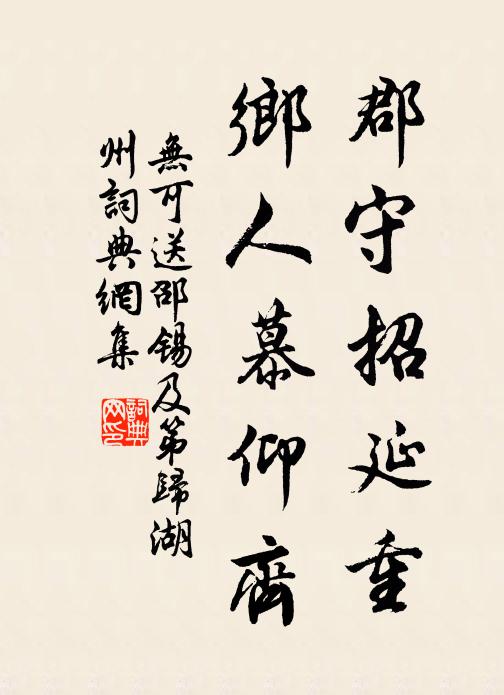 郡守招延重
鄉人慕仰齊
無可送邵錫及第歸湖
州詞典網集
詞典
网印